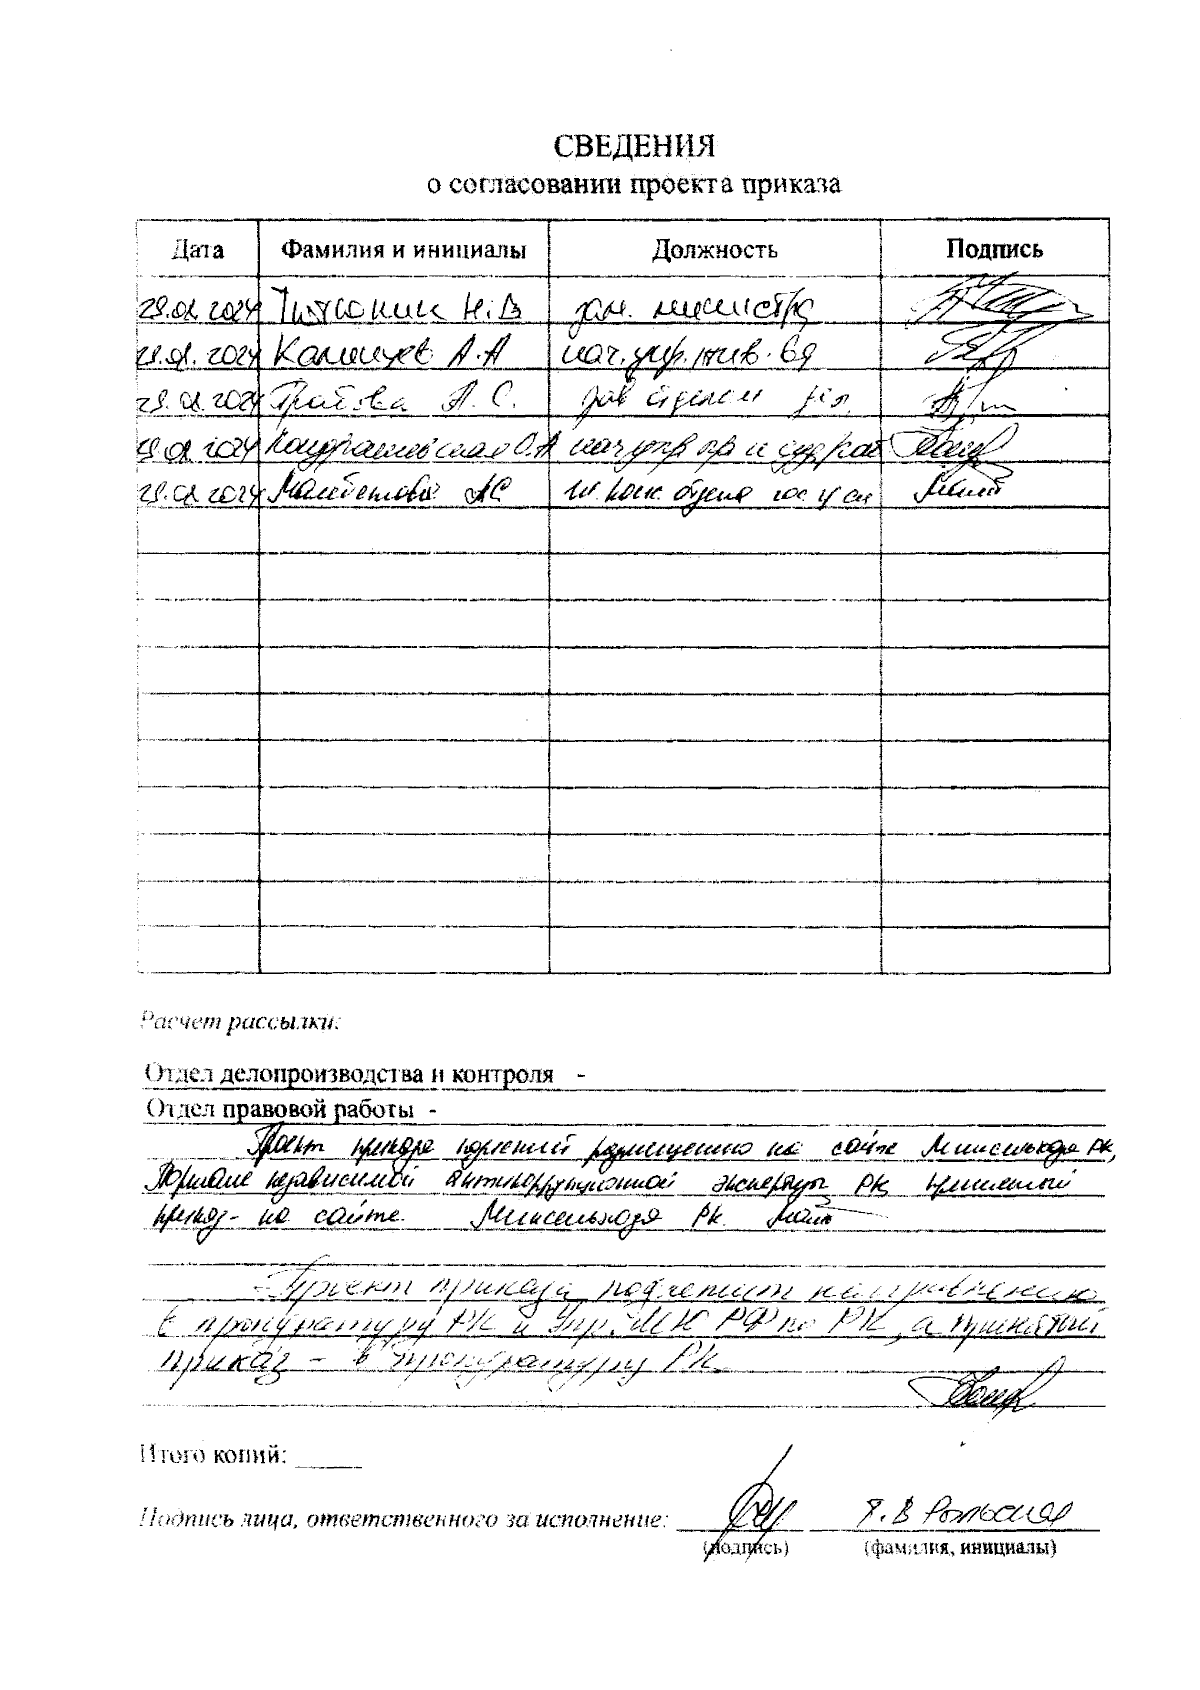 СВЕДЕНИЯ
о согласовании проекта приказа
Дата Фамилия и инициалы Должность Подпись
29.01.2024 Н.В зам. министра
29.01.2024 А.А нач.упр.жив-ва
29.01.2024 А.С. зав отделом
29.01.2024 О.А нач упр пр и
29.01.2024 АС отдела гос
Расчет рассылки:
Отдел делопроизводства и контроля -
Отдел правовой работы -
Проект приказа подлежит размещению на сайте Минсельхоза РК,
Портале независимой антикоррупционной экспертизы РК, принятый
приказ - на сайте Минсельхоза РК.
- Проект приказа подлежит направлению
в прокуратуру РК и Упр. МЮ РФ по РК, а принятый
приказ - в прокуратуру РК.
Итого копий:
Подпись лица, ответственного за исполнение:
(подпись) (фамилия, инициалы)